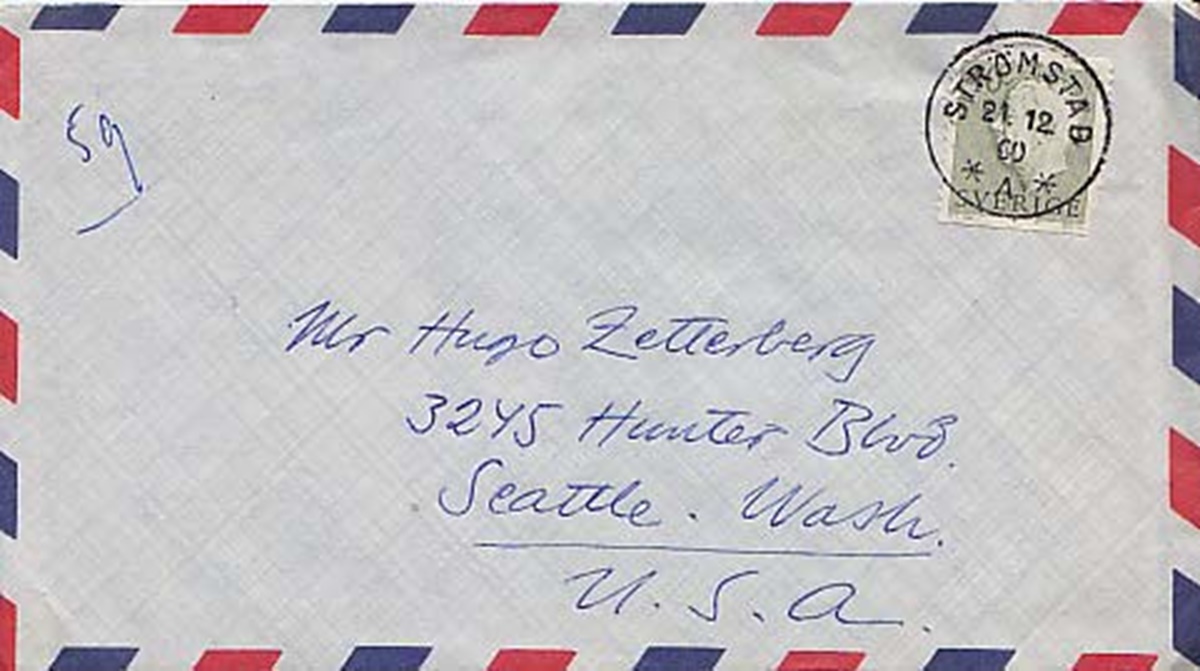 STRÖMSTAD
21. 12
60
* A *
SVERIGE
Mr Hugo Zetterberg
3245 Hunter Blvd.
Seattle. Wash.
U.S.A.